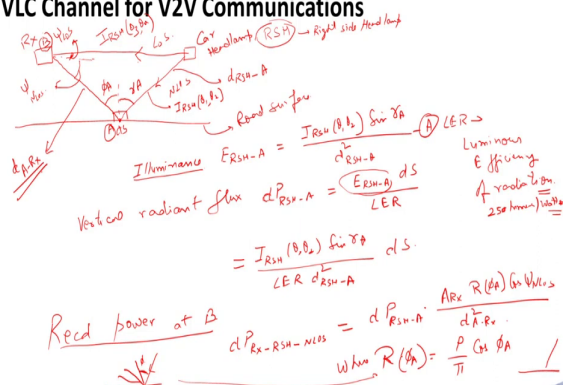 VLC Channel for V2V Communications
Rx B ψLOS I_RSH(θ1,θ2) LOS Car Headlamp RSH → Right side Headlamp
ψNLOS φA γA NLOS d_RSH-A
I_RSH(θ1,θ2)
A dS Road Surface
d_A-Rx
Illuminance E_RSH-A = I_RSH(θ1,θ2) Sin γA / d²_RSH-A — A LER →
Luminous
Efficiency
of radiation
250 lumens/Watts
Vertical radiant flux dP_RSH-A = E_RSH-A dS / LER
= I_RSH(θ1,θ2) Sin γA / LER d²_RSH-A dS.
Recd power at B dP_Rx-RSH-NLOS = dP_RSH-A · A_Rx R(φA) Cos ψNLOS / d²_A-Rx
when R(φA) = ρ/π Cos φA